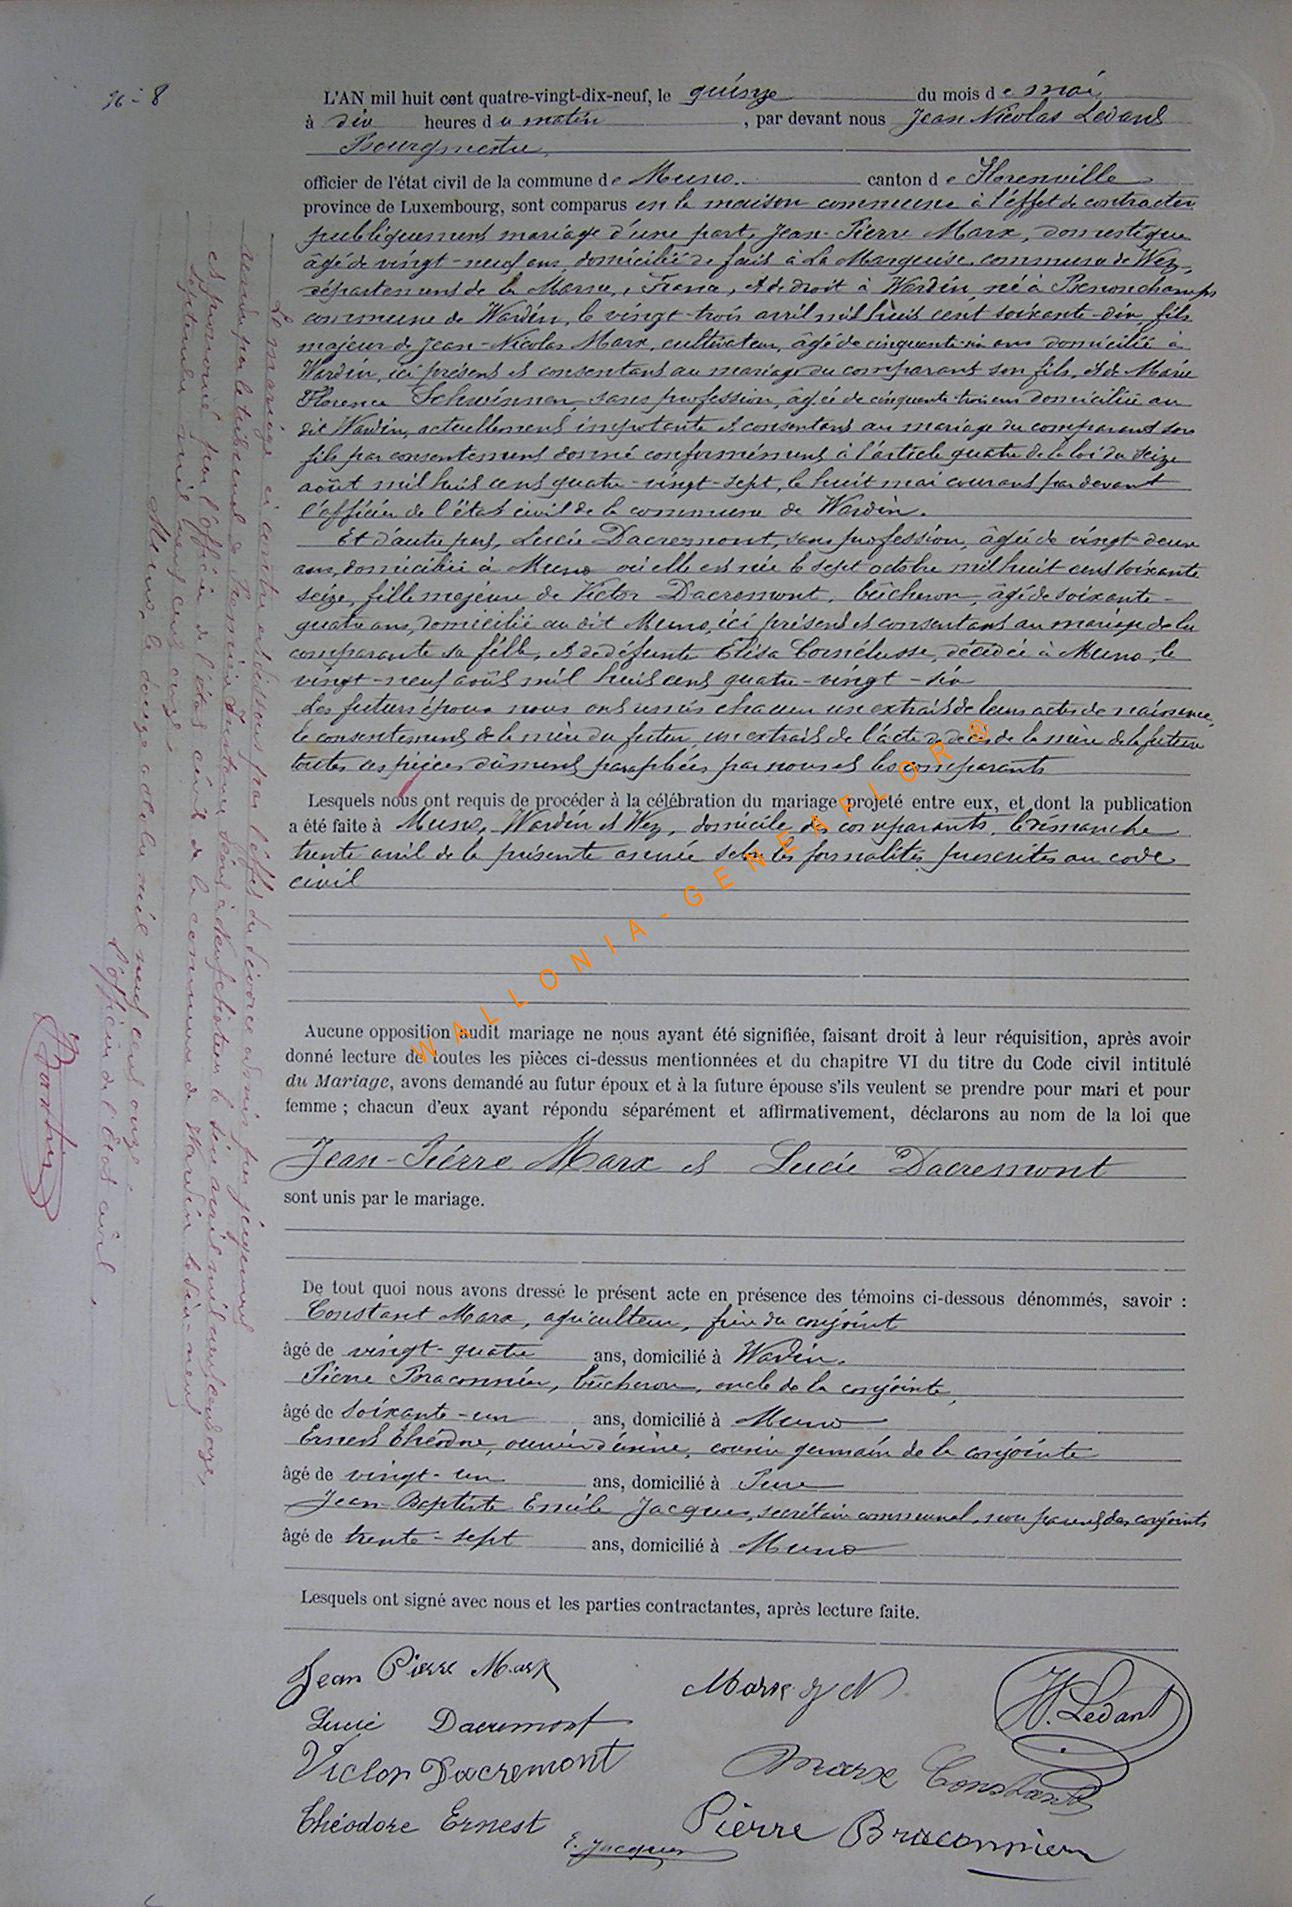 96 - 8
L'AN mil huit cent quatre-vingt-dix-neuf, le quinze du mois de mai,
à dix heures du matin, par devant nous Jean Nicolas Ledant
Bourgmestre,
officier de l'état civil de la commune de Muno. canton de Florenville
province de Luxembourg, sont comparus en la maison commune à l'effet de contracter
publiquement mariage d'une part, Jean-Pierre Marx, domestique
âgé de vingt-neuf ans, domicilié de fait à La Marqueuse, commune de Wez,
département de la Marne, France, et de droit à Wardin, né à Benonchamps
commune de Wardin, le vingt-trois avril mil huit cent soixante-dix, fils
majeur de Jean-Nicolas Marx, cultivateur, âgé de cinquante-six ans domicilié à
Wardin, ici présent et consentant au mariage du comparant son fils, et de Marie
Florence Schwinnen, sans profession, âgée de cinquante-trois ans domiciliée au
dit Wardin, actuellement impotente et consentant au mariage du comparant son
fils par consentement donné conformément à l'article quatre de la loi du seize
août mil huit cent quatre-vingt-sept, le huit mai courant par devant
l'officier de l'état civil de la commune de Wardin.
Et d'autre part, Lucie Dacremont, sans profession, âgée de vingt-deux
ans, domiciliée à Muno où elle est née le sept octobre mil huit cent soixante
seize, fille majeure de Victor Dacremont, bûcheron, âgé de soixante-
quatre ans, domicilié au dit Muno, ici présent et consentant au mariage de la
comparante sa fille, et de défunte Elisa Cornélusse, décédée à Muno, le
vingt-neuf août mil huit cent quatre-vingt-six
Les futurs époux nous ont remis chacun un extrait de leurs actes de naissance,
le consentement de la mère du futur, un extrait de l'acte de décès de la mère de la future
toutes ces pièces dûment paraphées par nous et les comparants
Lesquels nous ont requis de procéder à la célébration du mariage projeté entre eux, et dont la publication
a été faite à Muno, Wardin et Wez, domicile des comparants, le dimanche
trente avril de la présente année selon les formalités prescrites au code
civil
Aucune opposition audit mariage ne nous ayant été signifiée, faisant droit à leur réquisition, après avoir
donné lecture de toutes les pièces ci-dessus mentionnées et du chapitre VI du titre du Code civil intitulé
du Mariage, avons demandé au futur époux et à la future épouse s'ils veulent se prendre pour mari et pour
femme ; chacun d'eux ayant répondu séparément et affirmativement, déclarons au nom de la loi que
Jean-Pierre Marx et Lucie Dacremont
sont unis par le mariage.
De tout quoi nous avons dressé le présent acte en présence des témoins ci-dessous dénommés, savoir :
Constant Marx, agriculteur, frère du conjoint
âgé de vingt-quatre ans, domicilié à Wardin.
Pierre Braconnier, bûcheron, oncle de la conjointe,
âgé de soixante-un ans, domicilié à Muno
Ernest Théodore, ouvrier d'usine, cousin germain de la conjointe
âgé de vingt-un ans, domicilié à Pure
Jean-Baptiste Emile Jacques, secrétaire communal, non parent des conjoints
âgé de trente-sept ans, domicilié à Muno
Lesquels ont signé avec nous et les parties contractantes, après lecture faite.
Jean Pierre Marx
Marx J N
N. Ledant
Lucie Dacremont
Victor Dacremont
Marx Constant
Théodore Ernest
E. Jacques
Pierre Braconnier
Le mariage ci contre est dissous par l'effet du divorce admis par jugement
rendu par le tribunal de Première Instance séant à Neufchâteau le six avril mil neuf cent onze,
et prononcé par l'officier de l'état civil de la commune de Wardin le dix-neuf
septembre mil neuf cent onze.
Muno, le douze octobre mil neuf cent onze
l'officier de l'état civil.
WALLONIA-GENEAFLOR®